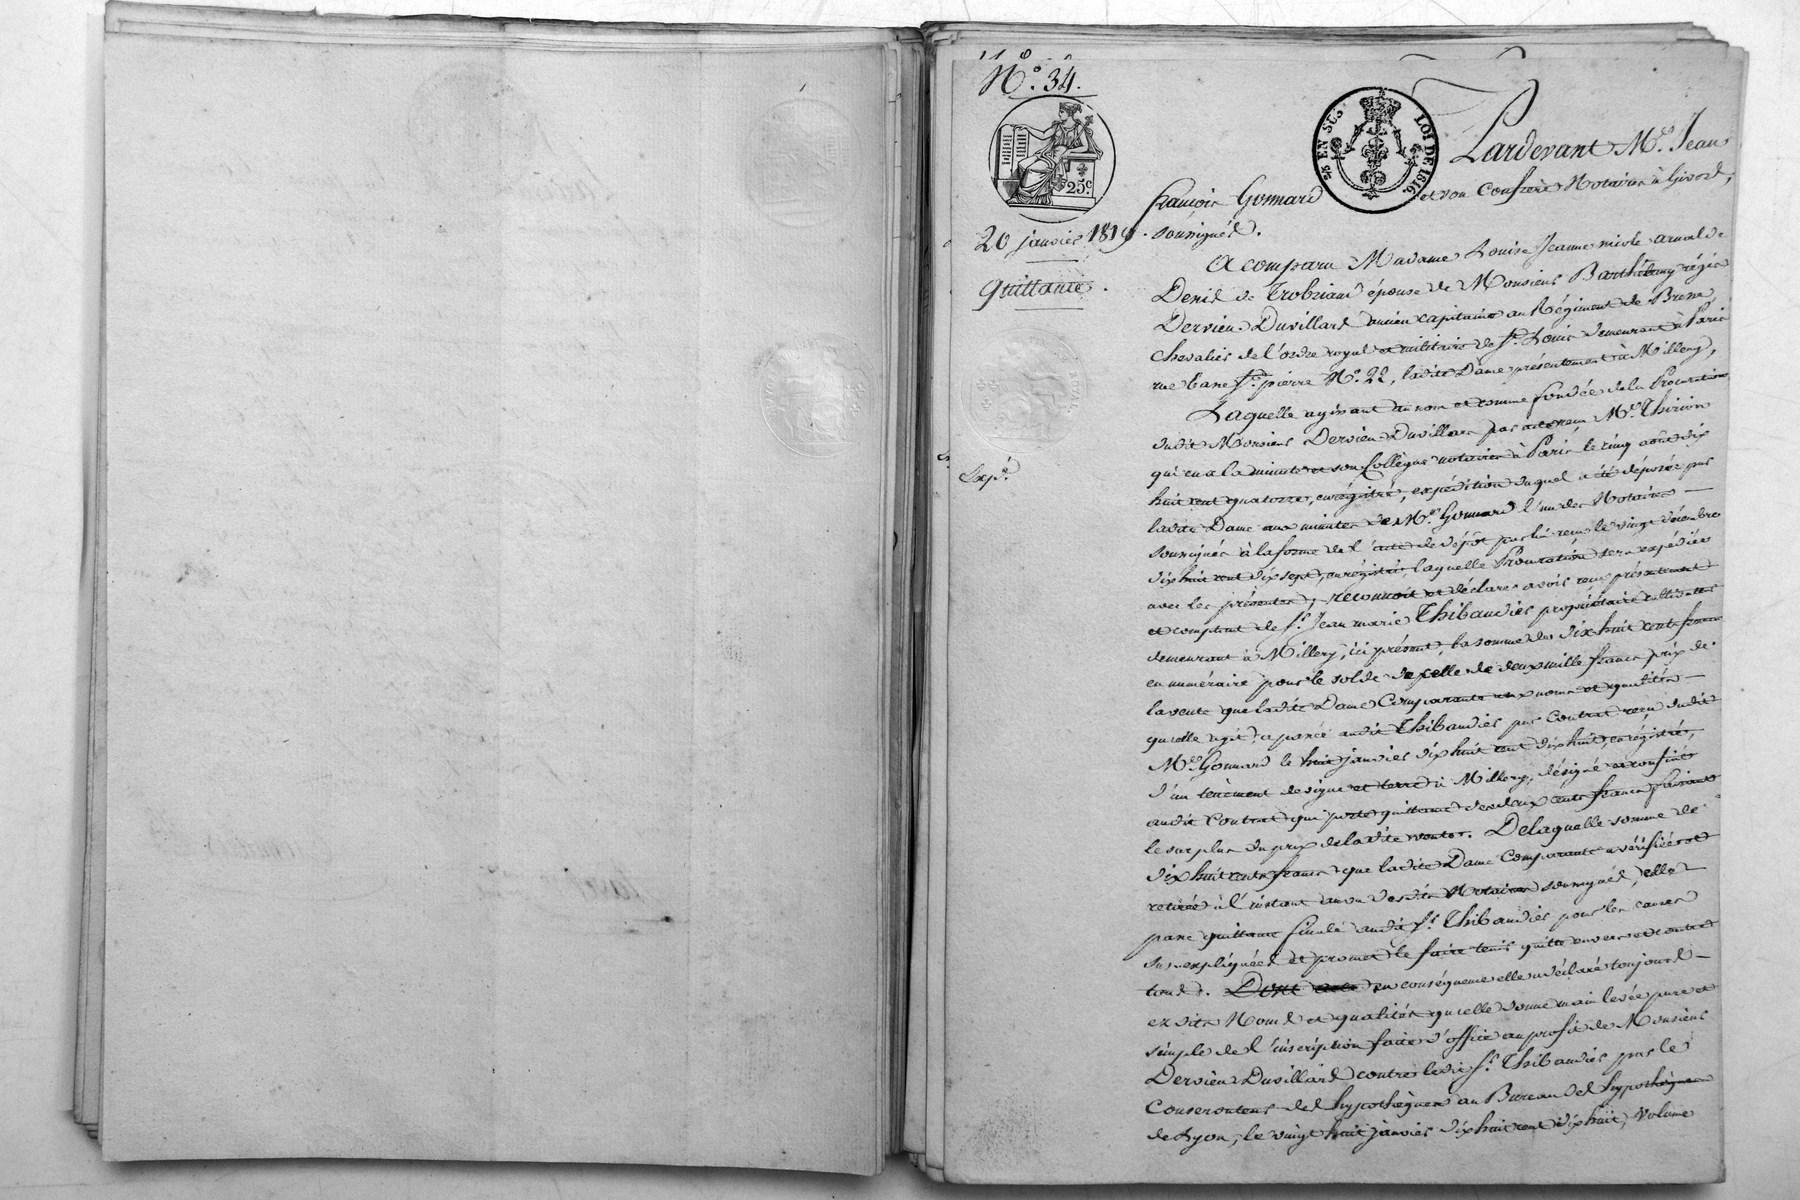 N.° 34.
25c.
EN SUS
LOI DE 1816.
20 janvier 1819.
Quittance.
Exp.é
Pardevant M.e Jean
françois Gonnard et son Confrere Notaires à Givors,
soussignés.
A comparu Madame Louise Jeanne nicole arnal de
Denis de Trobriand épouse de Monsieur Barthélemy régis
Dervieu Duvillard ancien capitaine au Régiment de Bresse,
Chevalier de l'ordre royal et militaire de St. Louis demeurant à Paris
rue basse St. pierre N.° 22, ladite Dame présentement à Millery,
Laquelle agissant au nom et comme fondée de la Procuration
dudit Monsieur Dervieu Duvillard par acte reçu M.e Thirion
qui en a la minute et son Collègue notaires à Paris le cinq août dix
huit cent quatorze, enregistré, expédition duquel a été déposée par
ladite Dame aux minutes de M.e Gonnard l'un des Notaires
soussignés à la forme de l'acte de dépôt par lui reçu le vingt décembre
dix huit cent dix sept, enregistré, laquelle Procuration sera expédiée
avec les présentes; reconnoit et déclare avoir reçu présentement
et comptant de Sr. Jean marie Thibaudier propriétaire cultivateur
demeurant à Millery, ici présent, la somme de dix huit cents francs
en numéraire pour le solde de celle de deux mille francs, prix de
la vente que ladite Dame Comparante aux noms et qualités
qu'elle agit, a passé audit Thibaudier par Contrat reçu dudit
M.e Gonnard le huit janvier dix huit cent dix huit, enregistré,
d'un tènement de vigne et terre à Millery, désigné et confiné
audit Contrat qui porte quittance des deux cents francs faisant
le surplus du prix de ladite vente. De laquelle somme de
dix huit cents francs que ladite Dame Comparante a vérifiée et
retirée à l'instant au vu desdits Notaires soussignés, elle
passe quittance finale audit Sr. Thibaudier pour les causes
sus-expliquées et promet le faire tenir quitte envers et contre
tous. Dont acte en conséquence elle a déclaré toujours
esdits Noms et qualités qu'elle donne main levée pure et
simple de l'inscription faite d'office au profit de Monsieur
Dervieu Duvillard contre ledit Sr. Thibaudier par le
Conservateur des hypothèques au Bureau des hypothèques
de Lyon, le vingt huit janvier dix huit cent dix huit, Volume